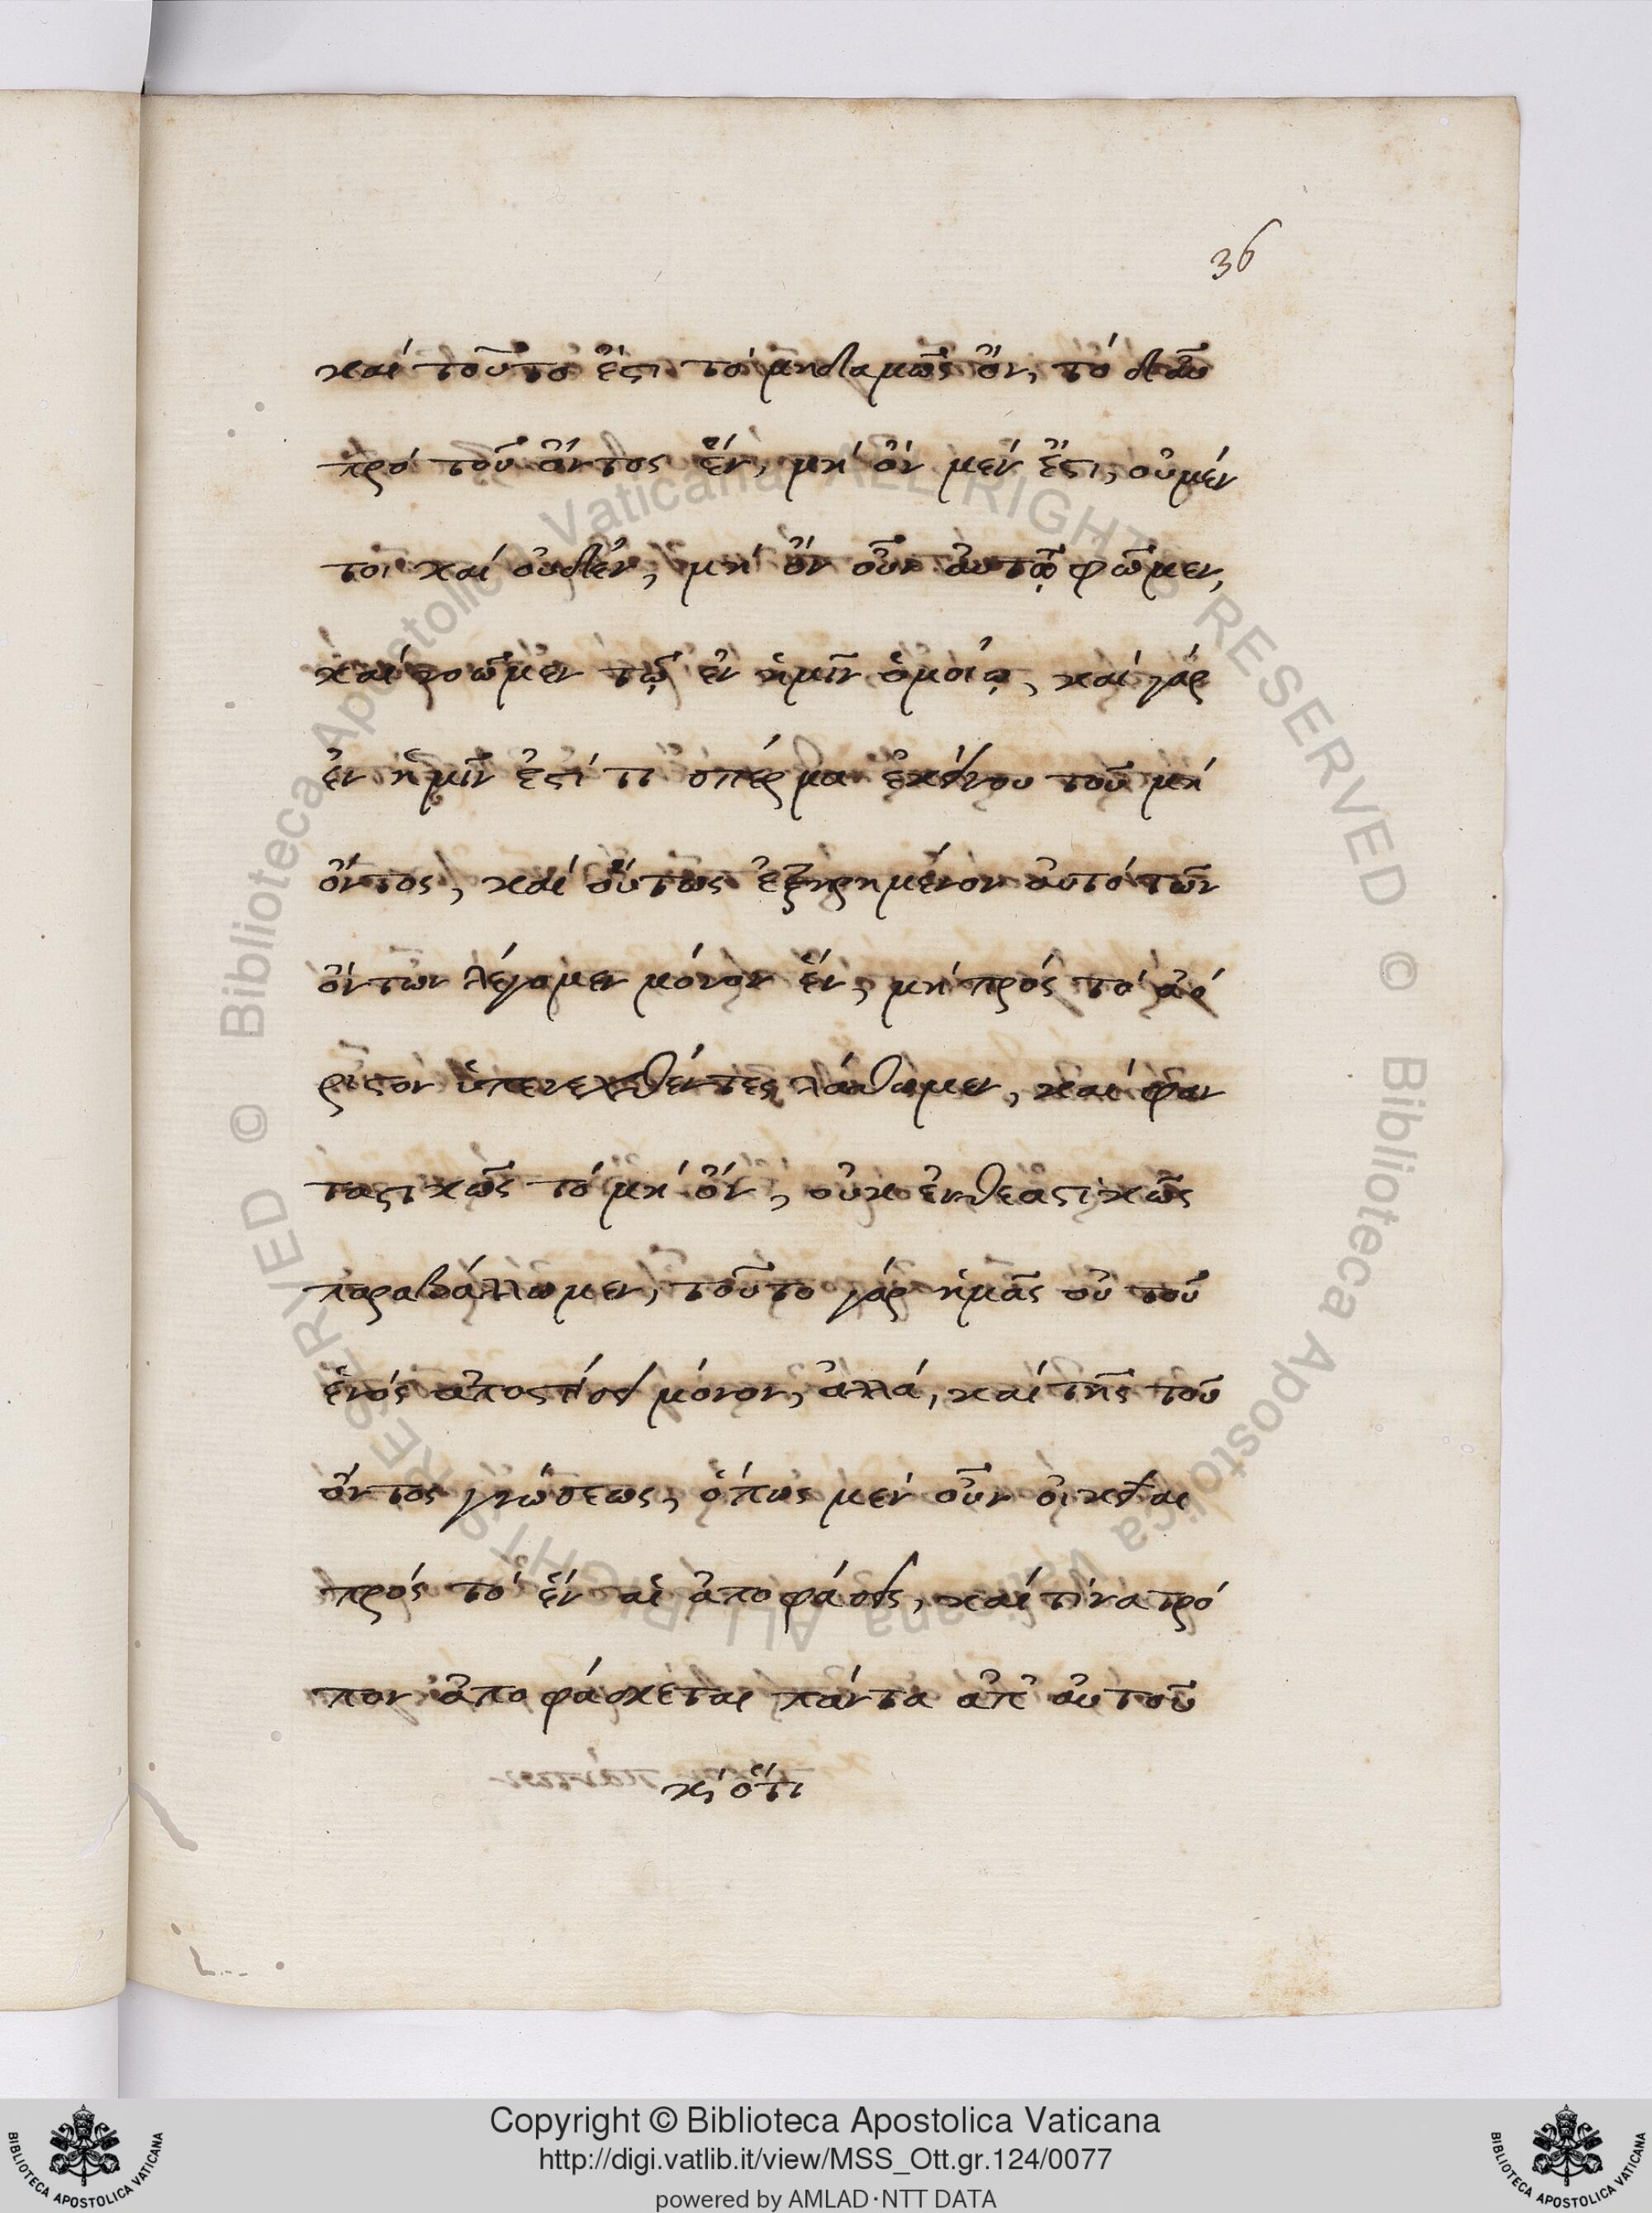 36
καί τοῦτο ἔστι τό μηδαμῶς ὄν, τό δ' αὖ
πρό τοῦ ὄντος ἕν, μή ὄν μέν ἔστι, οὐ μέν
τοι καί οὐδέν, μή ὄν οὖν αὐτῷ φῶμεν,
καί νοῶμεν τῷ ἐν ἡμῖν ὁμοίῳ, καί γάρ
ἐν ἡμῖν ἐστί τι σπέρμα ἐκείνου τοῦ μή
ὄντος, καί οὕτως ἐξῃρημένον αὐτό τῶν
ὄντων λέγομεν μόνον ἕν, μή πρός τό ἀό
ριστον ὑπενεχθέντες λάθωμεν, καί φαν
ταστικῶς τό μή ὄν, οὐκ ἐνθεαστικῶς
παραβάλλωμεν, τοῦτο γάρ ἡμᾶς οὐ τοῦ
ἑνός ἀποστήσει μόνον, ἀλλά, καί τῆς τοῦ
ὄντος γνώσεως, ὅπως μέν οὖν οἰκεῖαι
πρός τό ἕν αἱ ἀποφάσεις, καί τίνα τρό
πον ἀποφάσκεται πάντα ἀπ' αὐτοῦ
κ, ὅτι
Copyright © Biblioteca Apostolica Vaticana
http://digi.vatlib.it/view/MSS_Ott.gr.124/0077
powered by AMLAD·NTT DATA
BIBLIOTECA APOSTOLICA VATICANA
BIBLIOTECA APOSTOLICA VATICANA
© Biblioteca Apostolica Vaticana ALL RIGHTS RESERVED © Biblioteca Apostolica Vaticana ALL RIGHTS RESERVED